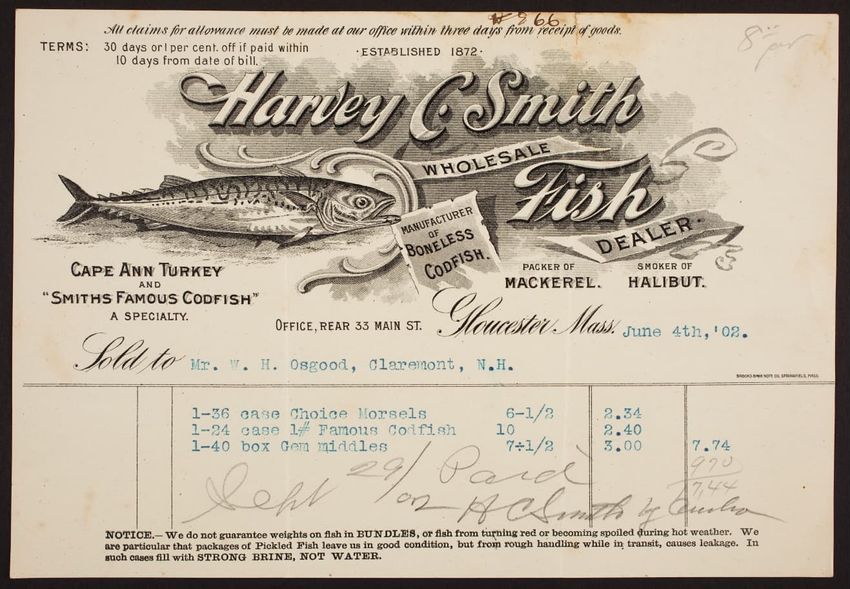 # 966
All claims for allowance must be made at our office within three days from receipt of goods.
TERMS: 30 days or 1 per cent. off if paid within
10 days from date of bill.
·ESTABLISHED 1872·
Harvey C. Smith
WHOLESALE
Fish
DEALER.
MANUFACTURER
OF
BONELESS
CODFISH.
CAPE ANN TURKEY
AND
"SMITHS FAMOUS CODFISH"
A SPECIALTY.
PACKER OF
MACKEREL.
SMOKER OF
HALIBUT.
OFFICE, REAR 33 MAIN ST. Gloucester Mass. June 4th,'02.
Sold to Mr. W. H. Osgood, Claremont, N.H.
BROOKS BANK NOTE CO. SPRINGFIELD, MASS.
1-36 case Choice Morsels 6-1/2 2.34
1-24 case 1# Famous Codfish 10 2.40
1-40 box Gem middles 7÷1/2 3.00 7.74
Sept 29/02 Paid
7,44
H C Smith by
NOTICE.— We do not guarantee weights on fish in BUNDLES, or fish from turning red or becoming spoiled during hot weather. We
are particular that packages of Pickled Fish leave us in good condition, but from rough handling while in transit, causes leakage. In
such cases fill with STRONG BRINE, NOT WATER.